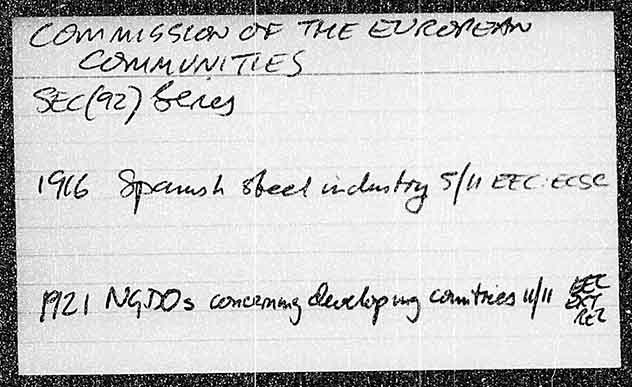 COMMISSION OF THE EUROPEAN
COMMUNITIES
SEC(92) Series
1916 Spanish steel industry 5/11 EEC: ECSC
1921 NGDOs concerning developing countries 11/11 EEC
EXT
REL